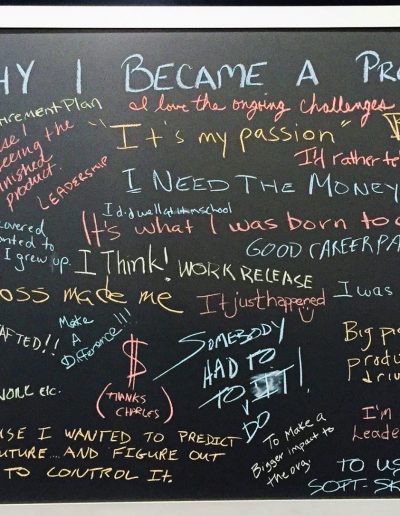 WHY I BECAME A PRO
Retirement Plan
I love the ongoing challenges
seeing the
finished
product.
LEADERSHIP
"It's my passion"
I'd rather te
I NEED THE MONEY
I did well at in school
It's what I was born to do
wanted to
I grew up.
GOOD CAREER PA
I Think!
WORK RELEASE
BOSS made me
It just happened
I was
DRAFTED!!
Make
A
Difference!!!
$
(THANKS
CHARLES)
SOMEBODY
HAD TO
TO IT!
DO
Big pi
produ
driv
WORK etc.
I'm
Leade
I WANTED TO PREDICT
FUTURE... AND FIGURE OUT
TO CONTROL IT.
To Make a
Bigger impact to
the org.
TO US
SOFT-SK